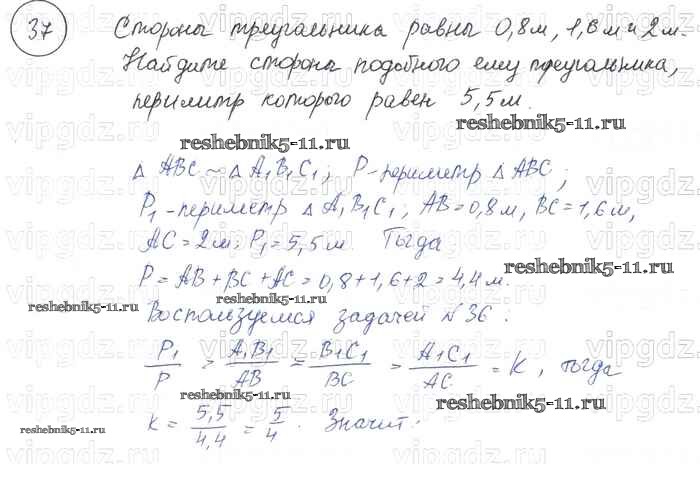 37 Стороны треугольника равны 0,8м, 1,6м и 2м.
Найдите стороны подобного ему треугольника,
периметр которого равен 5,5м.
reshebnik5-11.ru
reshebnik5-11.ru
Δ ABC ~ Δ A₁B₁C₁; P-периметр Δ ABC;
P₁-периметр Δ A₁B₁C₁; AB=0,8м, BC=1,6м,
AC=2м; P₁=5,5м. Тогда
reshebnik5-11.ru
P=AB+BC+AC=0,8+1,6+2=4,4м.
reshebnik5-11.ru
reshebnik5-11.ru
Воспользуемся задачей №36:
P₁/P = A₁B₁/AB = B₁C₁/BC = A₁C₁/AC = k, тогда
reshebnik5-11.ru
reshebnik5-11.ru
k = 5,5/4,4 = 5/4. Значит:
reshebnik5-11.ru